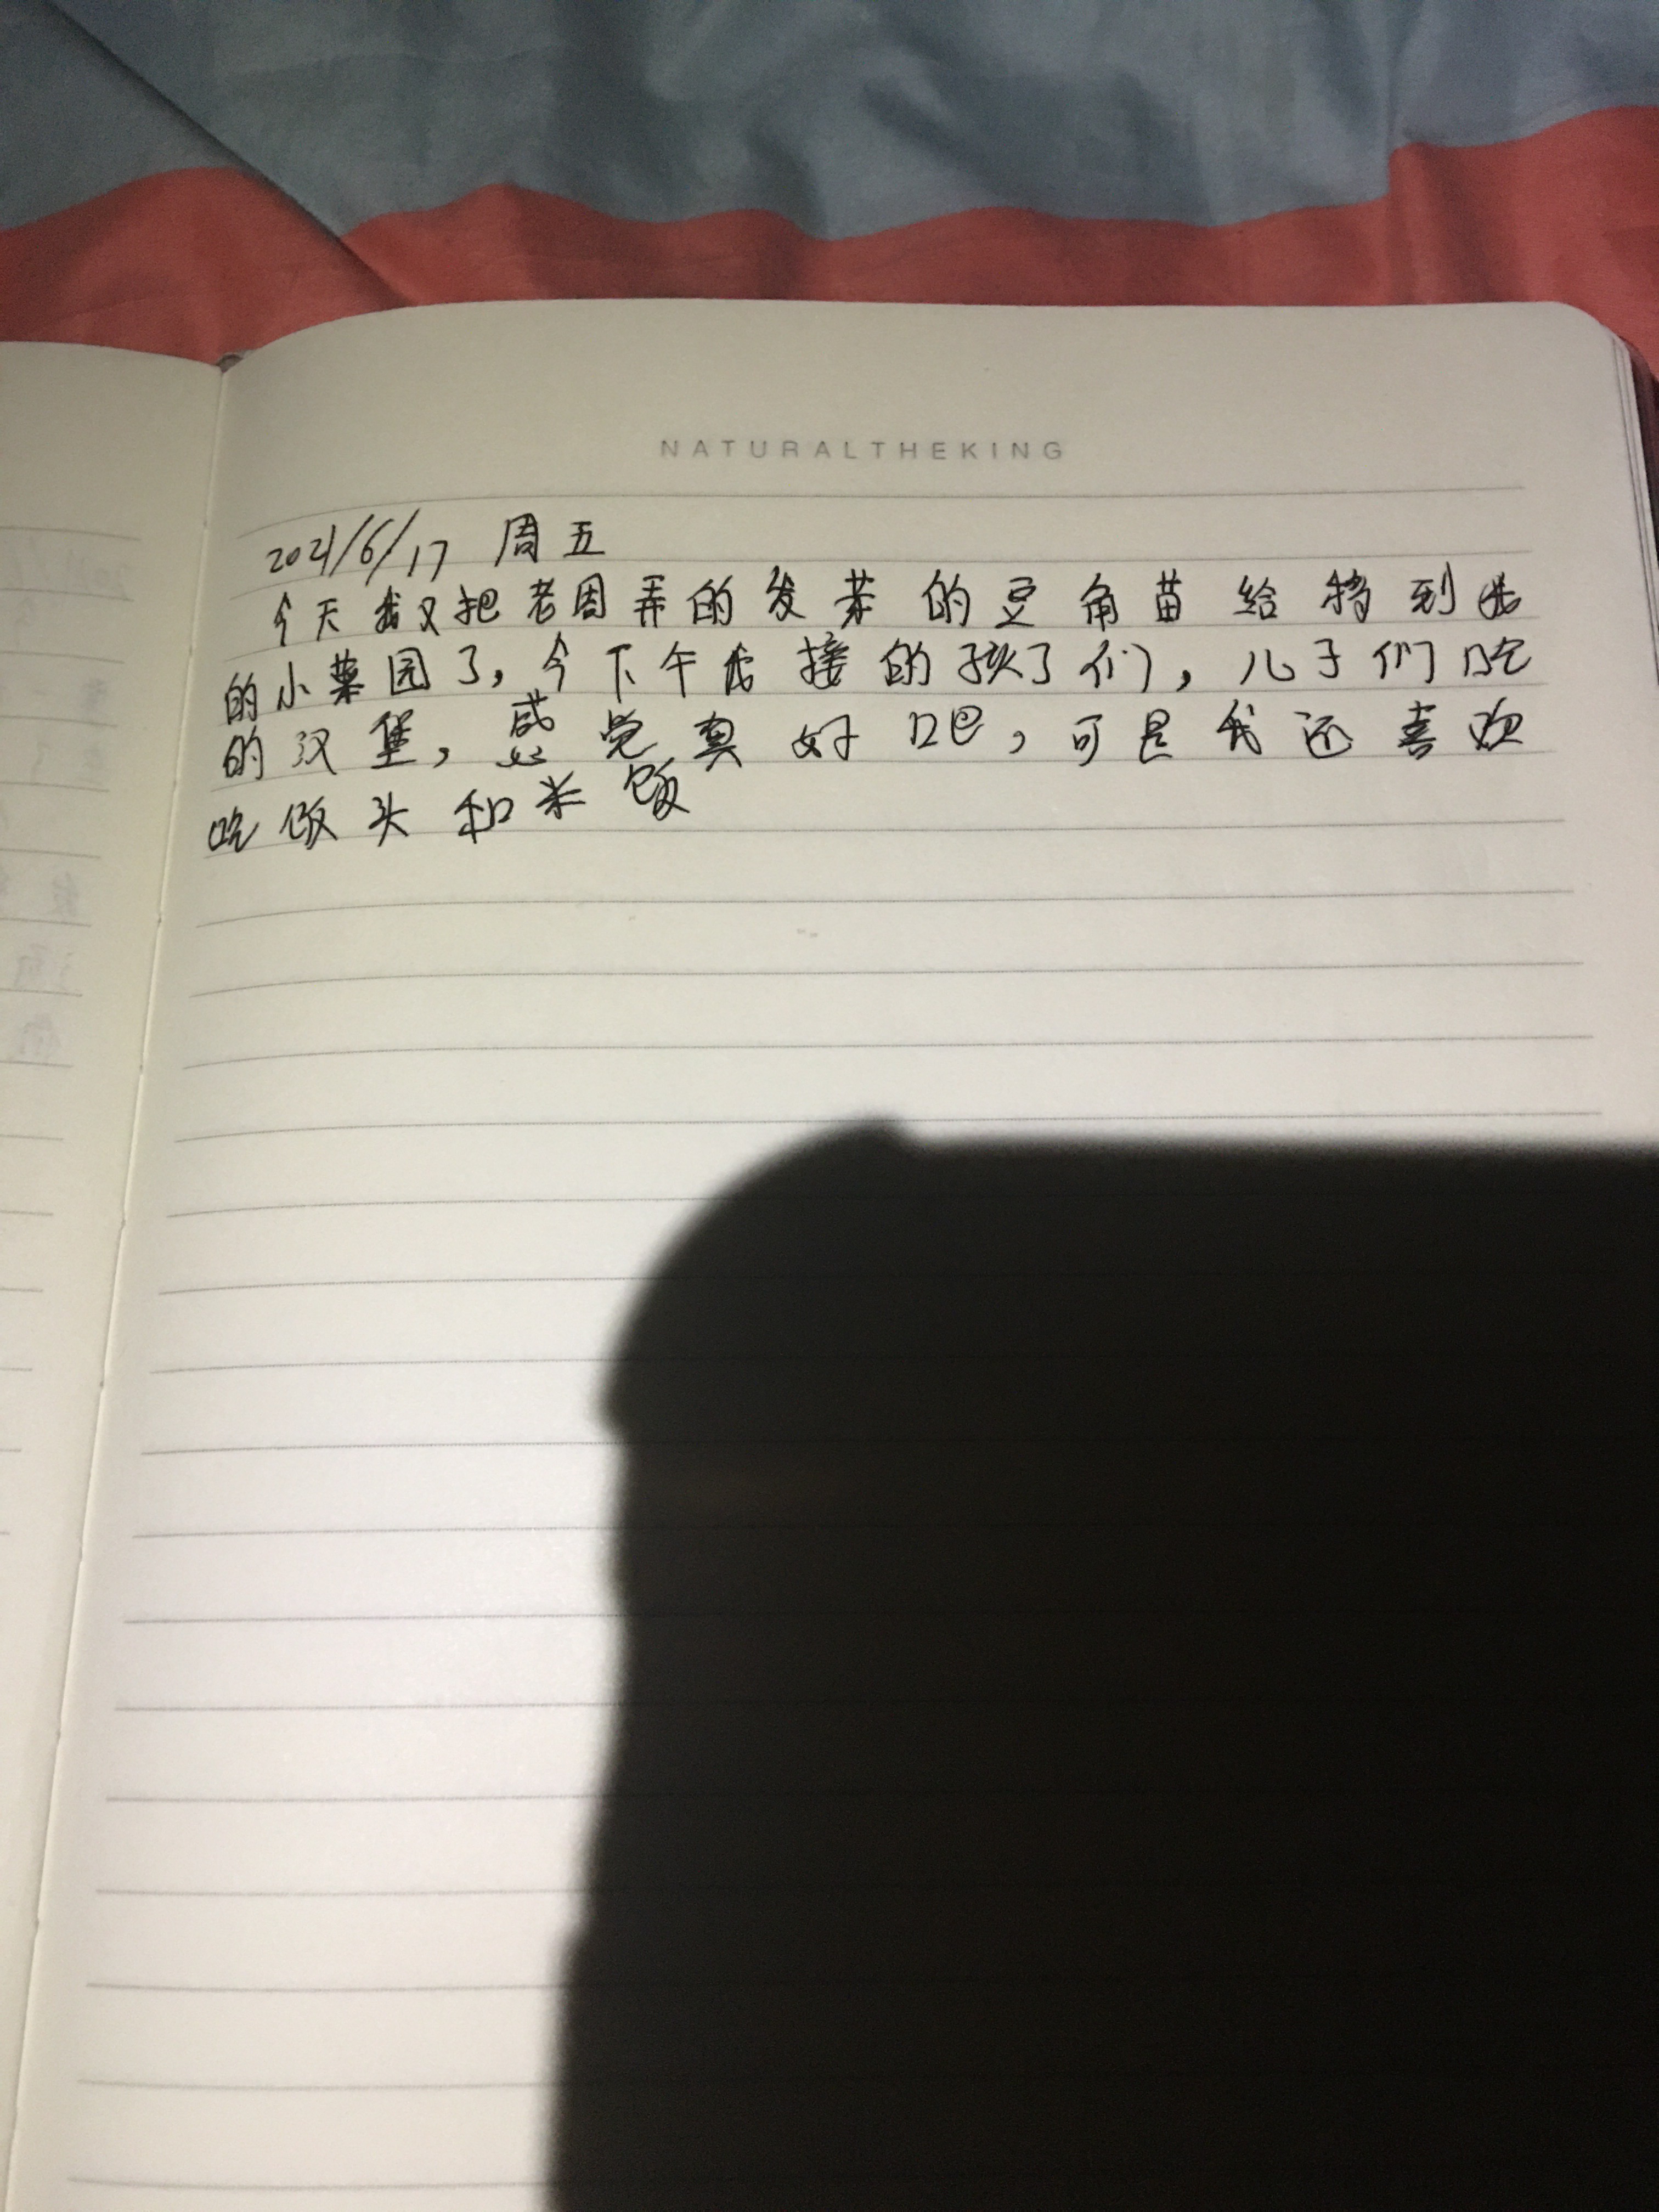 NATURALTHEKING
2021/6/17 周五
今天我又把老周弄的发芽的豆角苗给移到我
的小菜园了，今下午我接的孩子们，儿子们吃
的汉堡，感觉真好吧，可是我还喜欢
吃饭头和米饭